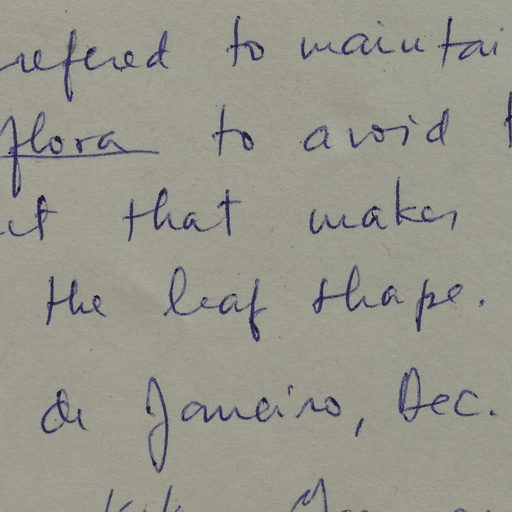 refered to maintai
flora to avoid
that makes
the leaf shape.
de Janeiro, Dec.